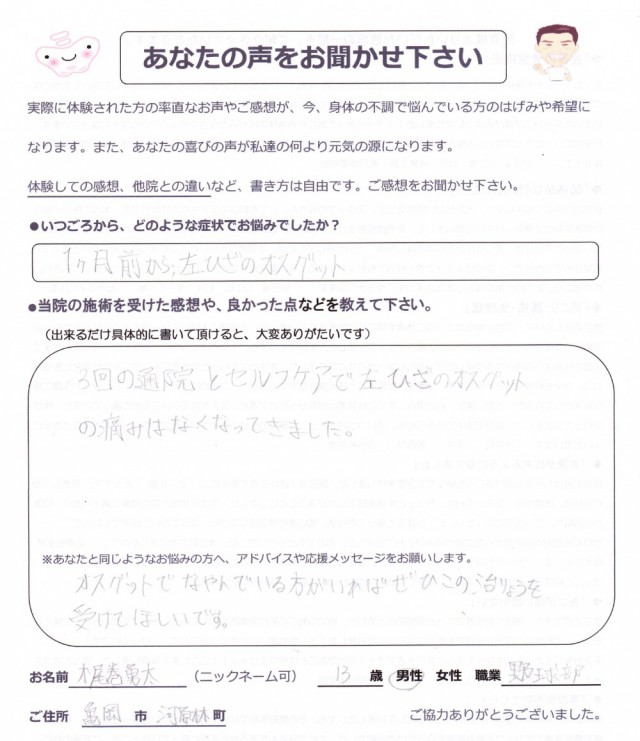 あなたの声をお聞かせ下さい
実際に体験された方の率直なお声やご感想が、今、身体の不調で悩んでいる方のはげみや希望に
なります。また、あなたの喜びの声が私達の何より元気の源になります。
体験しての感想、他院との違いなど、書き方は自由です。ご感想をお聞かせ下さい。
●いつごろから、どのような症状でお悩みでしたか？
1ヶ月前から、左ひざのオスグット
●当院の施術を受けた感想や、良かった点などを教えて下さい。
（出来るだけ具体的に書いて頂けると、大変ありがたいです）
3回の通院とセルフケアで左ひざのオスグット
の痛みはなくなってきました。
※あなたと同じようなお悩みの方へ、アドバイスや応援メッセージをお願いします。
オスグットでなやんでいる方がいればぜひこの治りょうを
受けてほしいです。
お名前 （ニックネーム可） 13 歳 男性 女性 職業 野球部
ご住所 亀岡 市 河原林 町 ご協力ありがとうございました。